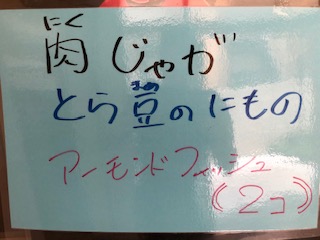 にく
肉じゃが
まめ
とら豆のにもの
アーモンドフィッシュ
(2コ)